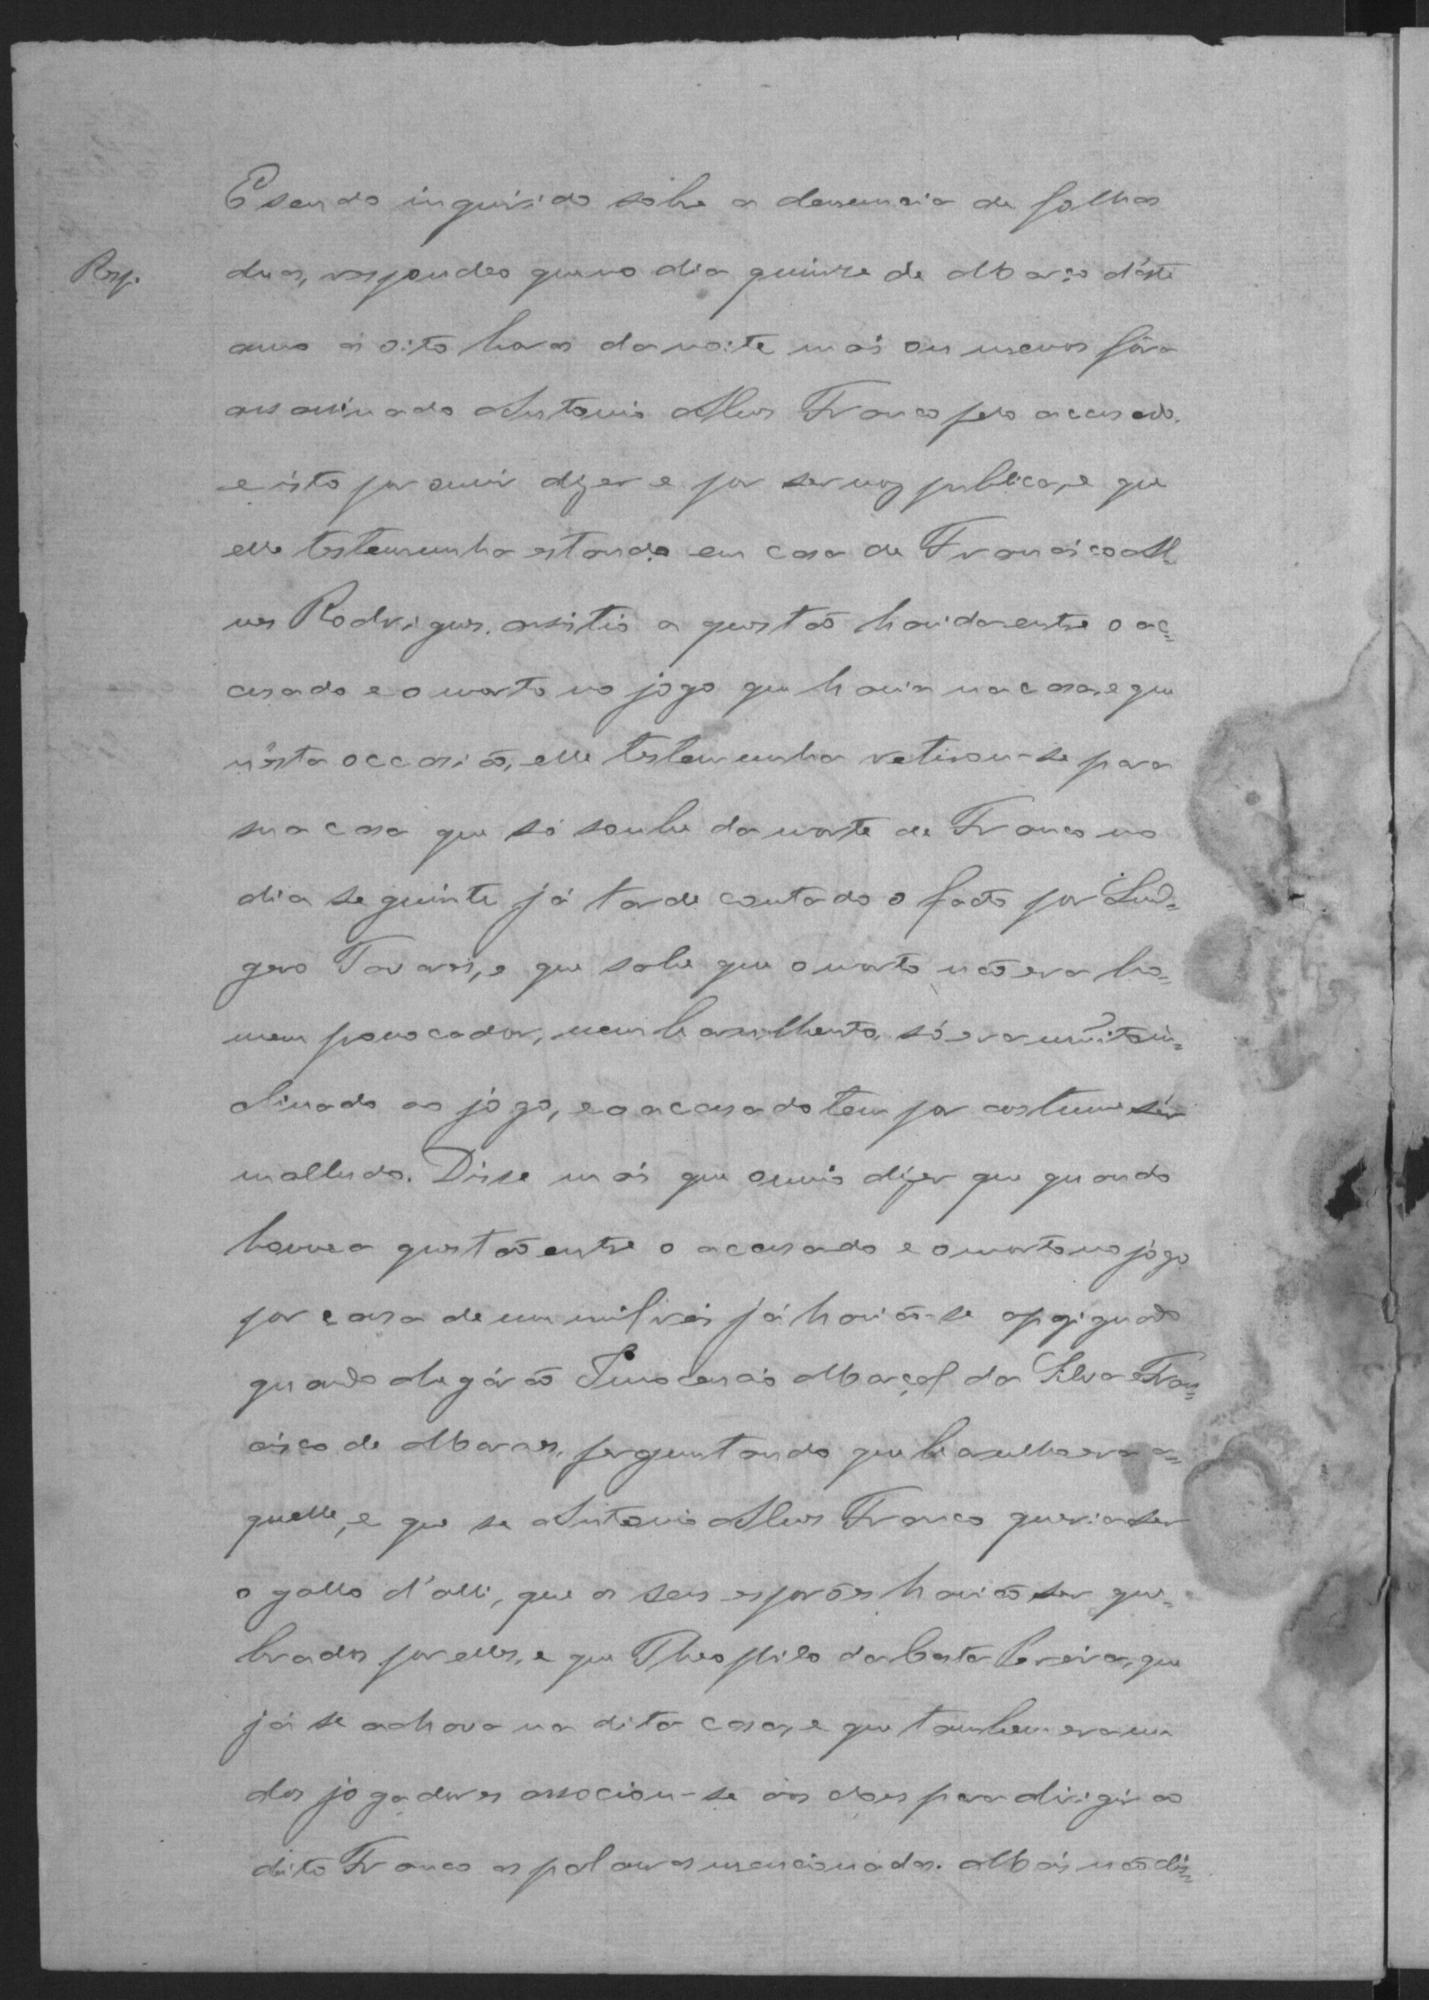 E sendo inquirido sobre a denuncia de folhas
Resp.
duas, respondeo que no dia quinze de Março d'éste
anno ás oito horas da noite mais ou menos fôra
assassinado Antonio Alves Franco pelo accusado,
e isto por ouvir dizer e por ser voz publica, e que
elle testemunha estando em casa de Francisco Al=
ves Rodrigues, assistio a questão havida entre o ac=
cusado e o morto no jogo que havia na casa, e que
n'ésta occasião, elle testemunha retirou-se para
sua casa que só soube da morte de Franco no
dia seguinte já tarde contado o facto por Lud=
gero Tavares, e que sabe que o morto não era ho=
mem provocador, nem barulhento, só era muito in=
clinado ao jógo, e o acusado tem por costume sér
malludo. Disse mais que ouvio dizer que quando
houve a questão entre o acusado e o morto no jógo
por causa de um mil reis já havião-se apaziguado
quando chegárão Innocencio Marçal da Silva e Fran=
cisco de Moraes, perguntando que barulho era a=
quelle, e que se Antonio Alves Franco queria ser
o gallo d'alli, que os seus esporões havião ser que=
brados por elles, e que Theophilo da Costa Pereira, que
já se achava na dita casa, e que tambem era um
dos jogadores associou-se aos dois para dirigir ao
dito Franco as palavras mencionadas. Mais não dis=